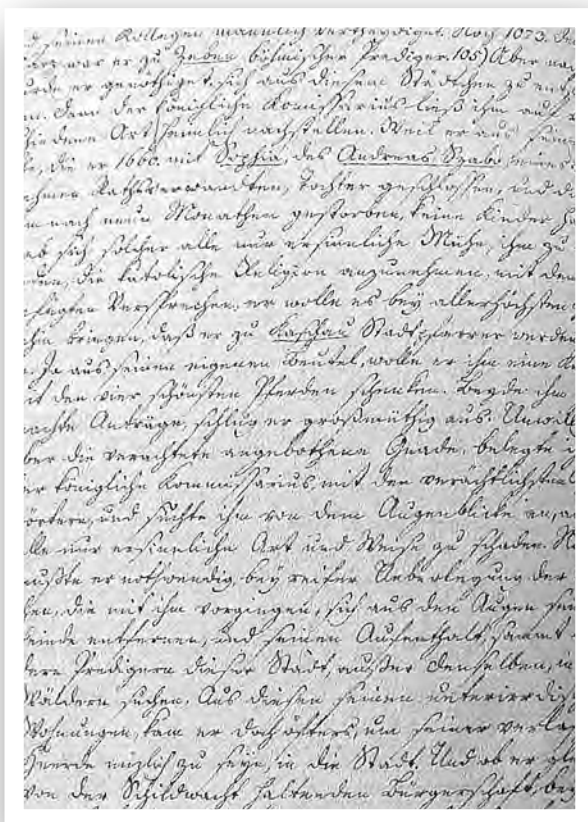 seinen Kollegen männlich vertheydiget. Noch 1673.
war er zu Zeben bölmischer Prediger. 105) Aber
wurde er genöthiget, sich aus diesem Städtchen zu
Denn der königliche Komissarius ließ ihm auf
schiedene Art heimlich nachstellen. Weil er aus seiner
die er 1660. mit Sophia, des Andreas Szabo, eines
nehmen Rathsverwandten, Tochter geschlossen, und die
nach neun Monathen gestorben, keine Kinder
gab sich solcher alle nur ersinnliche Mühe, ihm zu
die katolische Religion anzunehmen, mit dem
Versprechen, er wolle es bey allerhöchsten
ihm bringen, daß er zu Kaschau Stadtpfarrer werden
Ja aus seinen eigenen Beutel, wolle er ihm eine
mit den vier schönsten Pferden schenken. Beyde ihm
machte Anträge, schlug er großmüthig aus. Unwillig
über die verachtete angebothene Gnade, belegte
der königliche Kommissarius, mit den verächtlichsten
wörtern, und suchte ihm von dem Augenblicke an,
alle nur ersinnliche Art und Weise zu schaden.
mußte er nothwendig, bey reifer Ueberlegung der
die mit ihm vorgingen, sich aus den Augen seiner
Feinde entfernen, und seinen Aufenthalt, sammt
dern Predigern dieser Stadt, außer denselben, in
Wäldern suchen. Aus diesen seinen unterirrdischen
Wohnungen, kam er doch öfters, um seiner
Heerde nüzlich zu seyn, in die Stadt. Und ob er
von der Schildwacht haltenden Bürgerschaft,